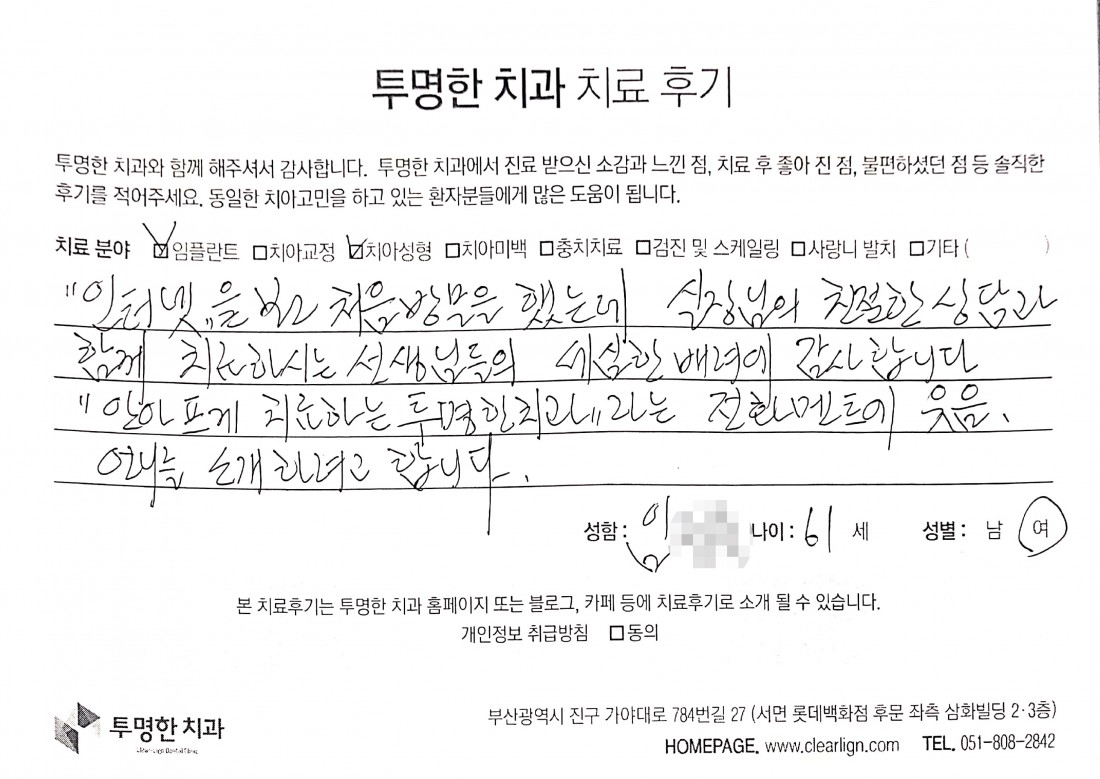 투명한 치과 치료 후기
투명한 치과와 함께 해주셔서 감사합니다. 투명한 치과에서 진료 받으신 소감과 느낀 점, 치료 후 좋아 진 점, 불편하셨던 점 등 솔직한
후기를 적어주세요. 동일한 치아고민을 하고 있는 환자분들에게 많은 도움이 됩니다.
치료 분야 ☑임플란트 □치아교정 ☑치아성형 □치아미백 □충치치료 □검진 및 스케일링 □사랑니 발치 □기타 ( )
"인터넷"을 보고 처음 방문을 했는데 실장님의 친절한 상담과
함께 치료하시는 선생님들의 세심한 배려에 감사합니다
"안아프게 치료하는 투명한치과"라는 전화멘트에 웃음.
소개하려고 합니다.
성함 : 임 나이 : 61 세 성별 : 남 여
본 치료후기는 투명한 치과 홈페이지 또는 블로그, 카페 등에 치료후기로 소개 될 수 있습니다.
개인정보 취급방침 □동의
투명한 치과
Clear-Lign Dental Clinic
부산광역시 진구 가야대로 784번길 27 (서면 롯데백화점 후문 좌측 삼화빌딩 2·3층)
HOMEPAGE. www.clearlign.com TEL. 051-808-2842